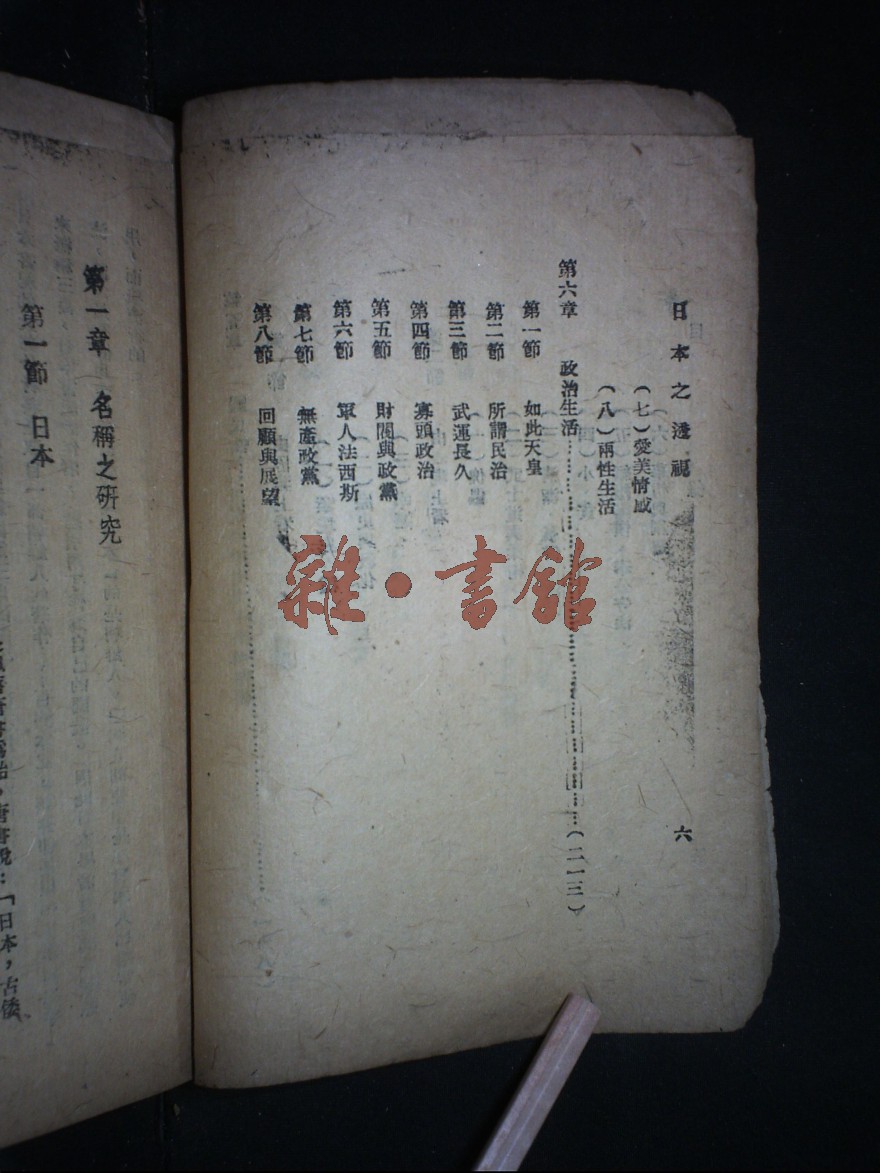 日本之透視
六
(七)愛美情感
(八)兩性生活
第六章 政治生活…………(二一三)
第一節 如此天皇
第二節 所謂民治
第三節 武運長久
第四節 寡頭政治
第五節 財閥與政黨
第六節 軍人法西斯
第七節 無產政黨
第八節 回顧與展望
雜·書館
第一章 名稱之研究
第一節 日本
唐書說:「日本,古倭